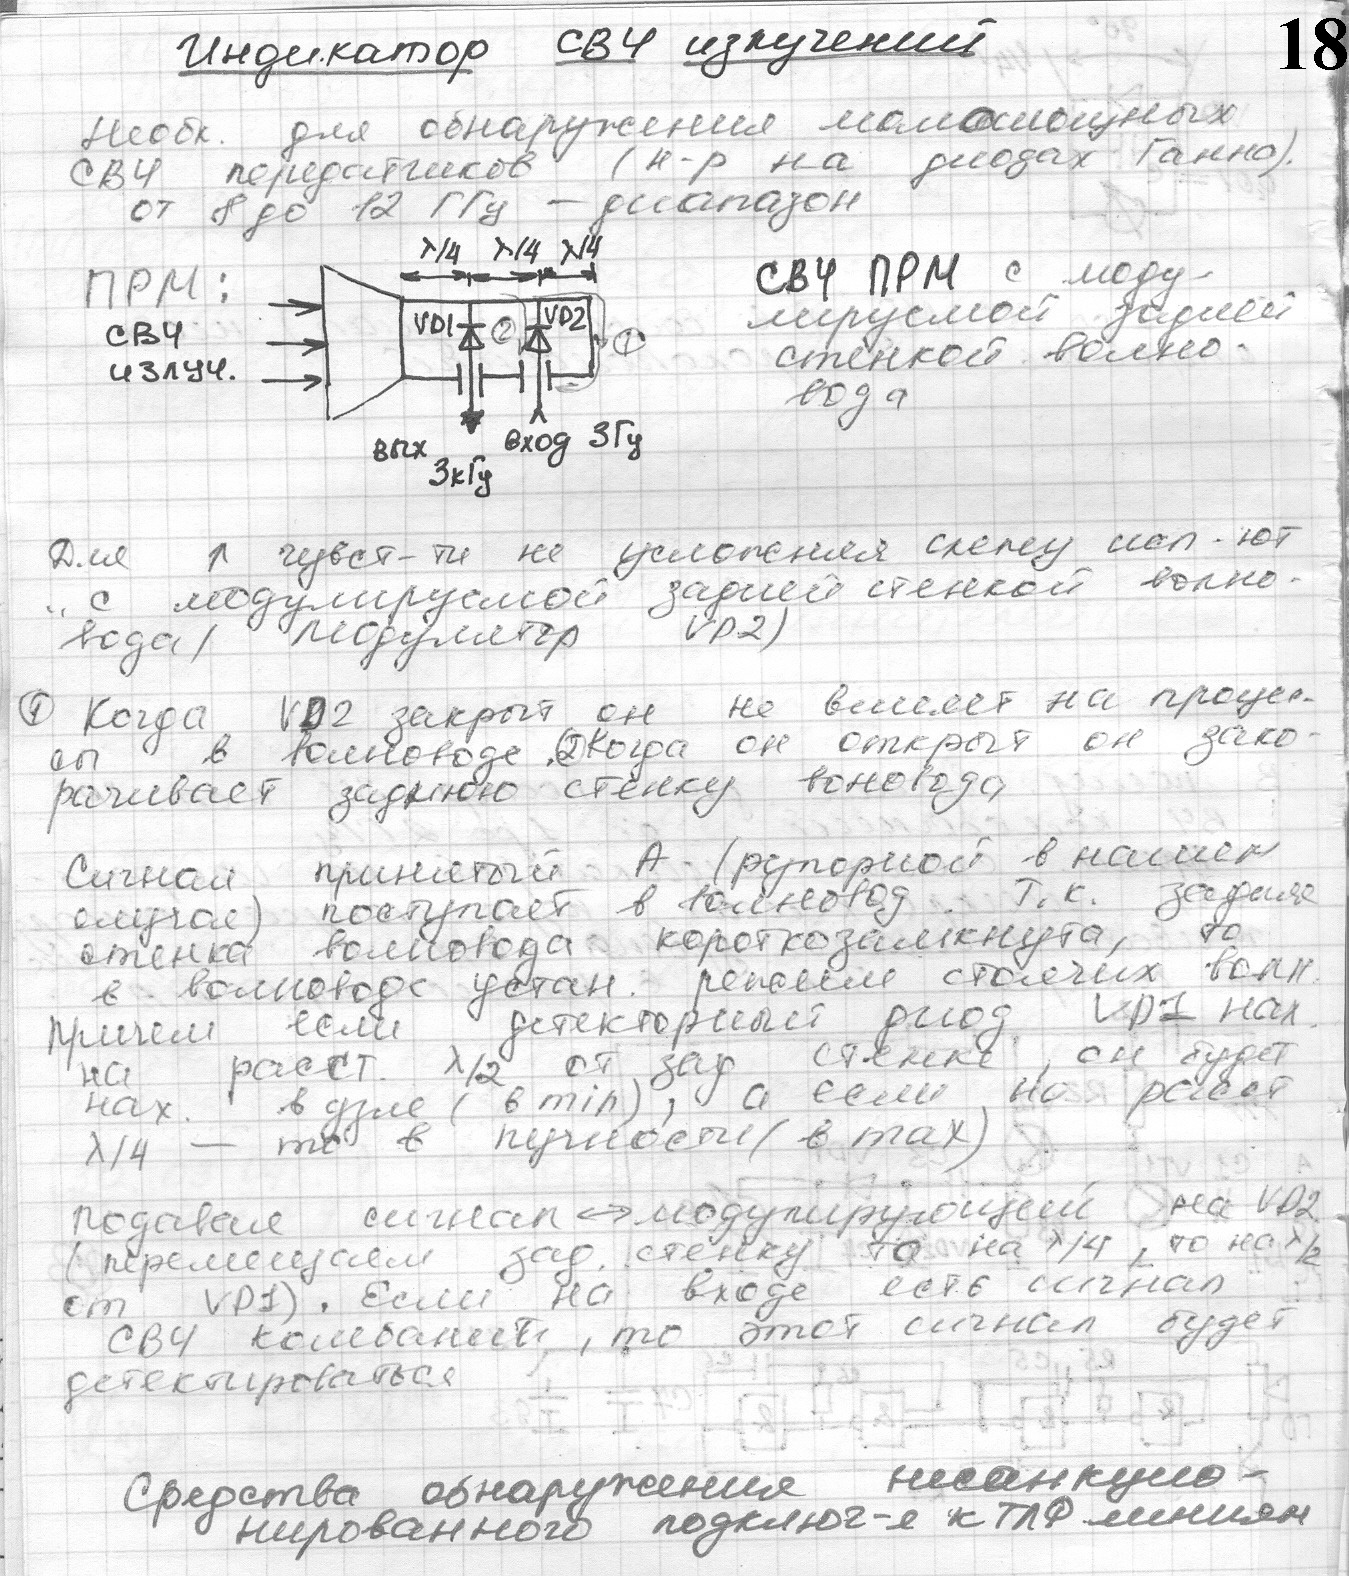 Индикатор СВЧ излучений
18
Необх. для обнаружения маломощных
СВЧ передатчиков (н-р на диодах Ганна).
от 8 до 12 ГГц — диапазон
ПРМ:
СВЧ
излуч.
λ/4 λ/4 λ/4
VD1 ② VD2 ①
вых
3кГц
вход 3Гц
СВЧ ПРМ с моду-
лируемой задней
стенкой волно-
вода
Для ↑ чувст-ти не усложняя схему исп-ют
с модулируемой задней стенкой волно-
вода/ модулятор VD2)
① Когда VD2 закрыт он не влияет на процес-
сы в волноводе. ② Когда он открыт он зако-
рачивает заднюю стенку воновода
Сигнал принятый А (рупорной в нашем
случае) поступает в волновод. Т.к. задняя
стенка волновода короткозамкнута, то
в волноводе устан. режим стоячих волн.
Причем если детекторный диод VD1 нах.
на расст. λ/2 от зад стенки, он будет
нах. в узле (в min), а если на расст
λ/4 — то в пучности (в max)
Подавая сигнал ↔ модулирующий на VD2
(перемещаем зад. стенку то на λ/4, то на λ/2
от VD1). Если на входе есть сигнал
СВЧ колебаний, то этот сигнал будет
детектироваться
Средства обнаружения несанкцио-
нированного подключ-я к ТЛФ линиям